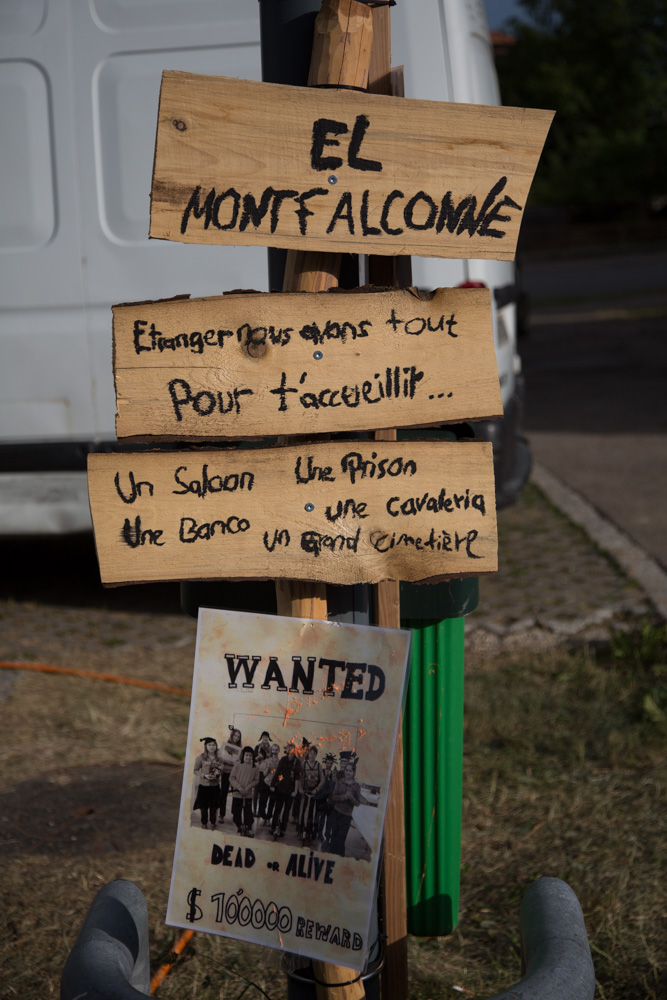 EL
MONTFALCONNE
Etranger nous avons tout
Pour t'accueillir...
Un Saloon Une Prison
Une Banco une cavaleria
un grand cimetière
WANTED
DEAD OR ALIVE
$ 100000 REWARD